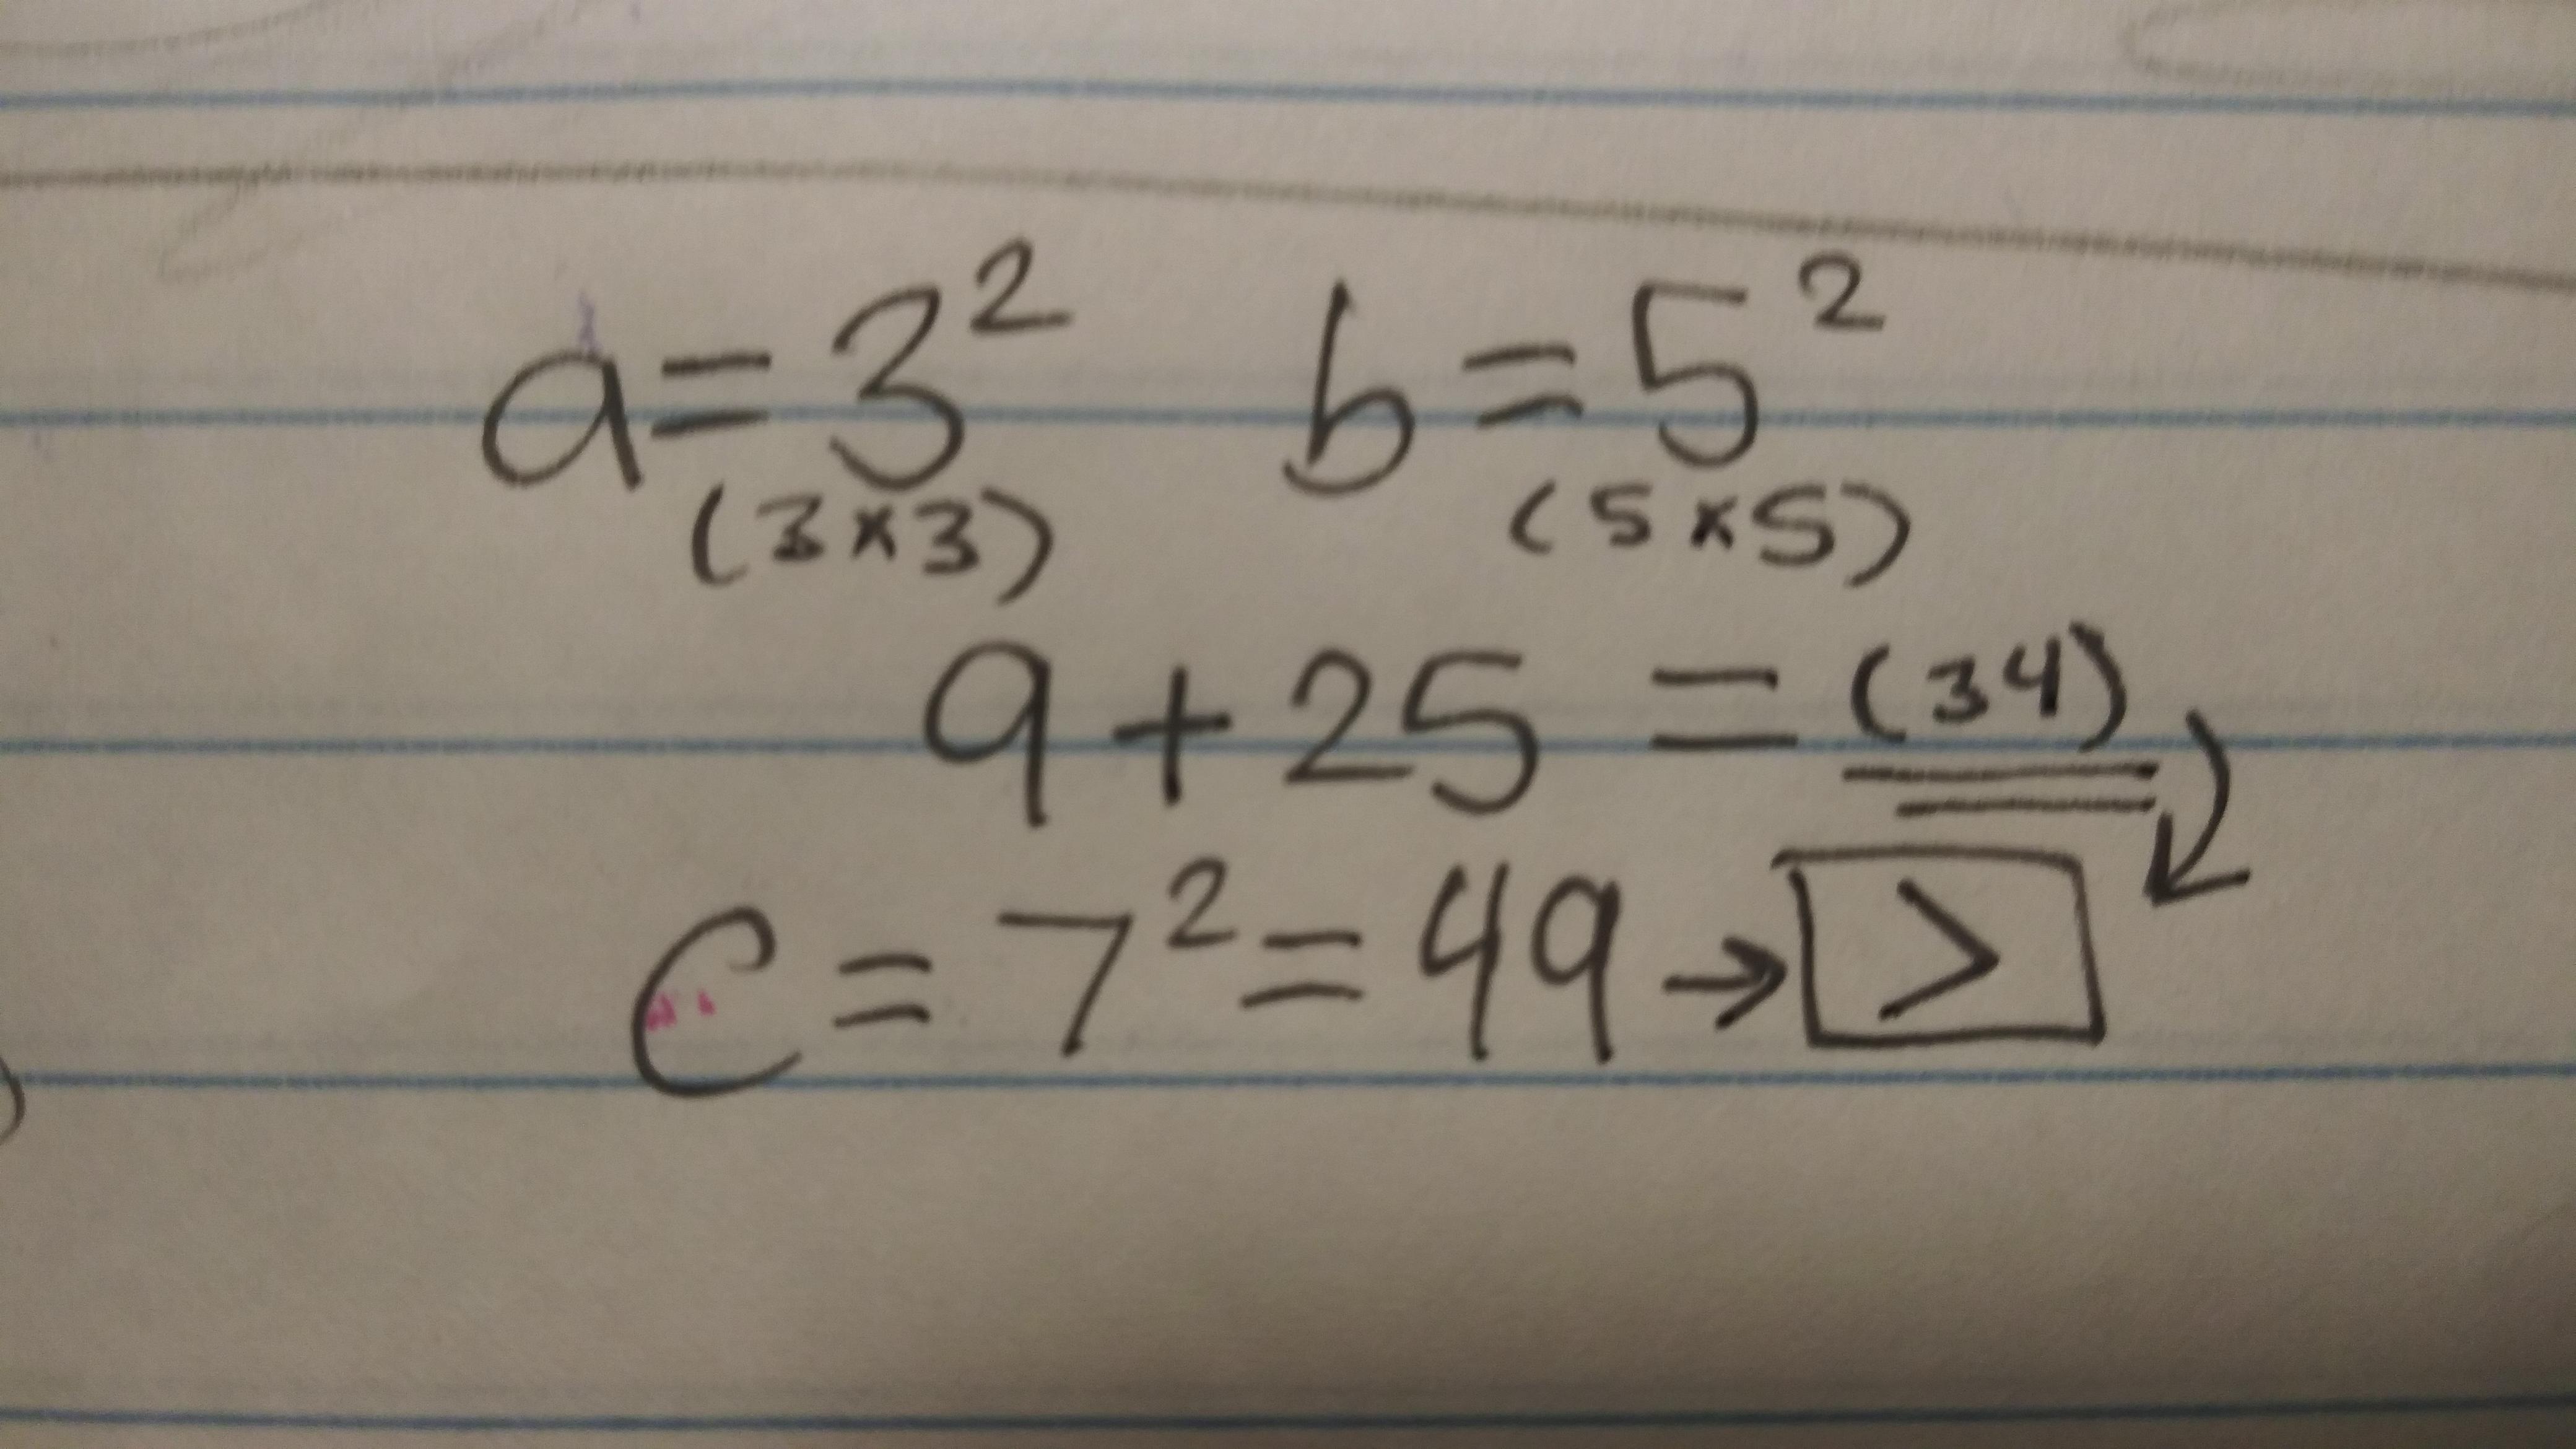 a = 3² b = 5²
(3×3) (5×5)
9 + 25 = (34)
c = 7² = 49 → >